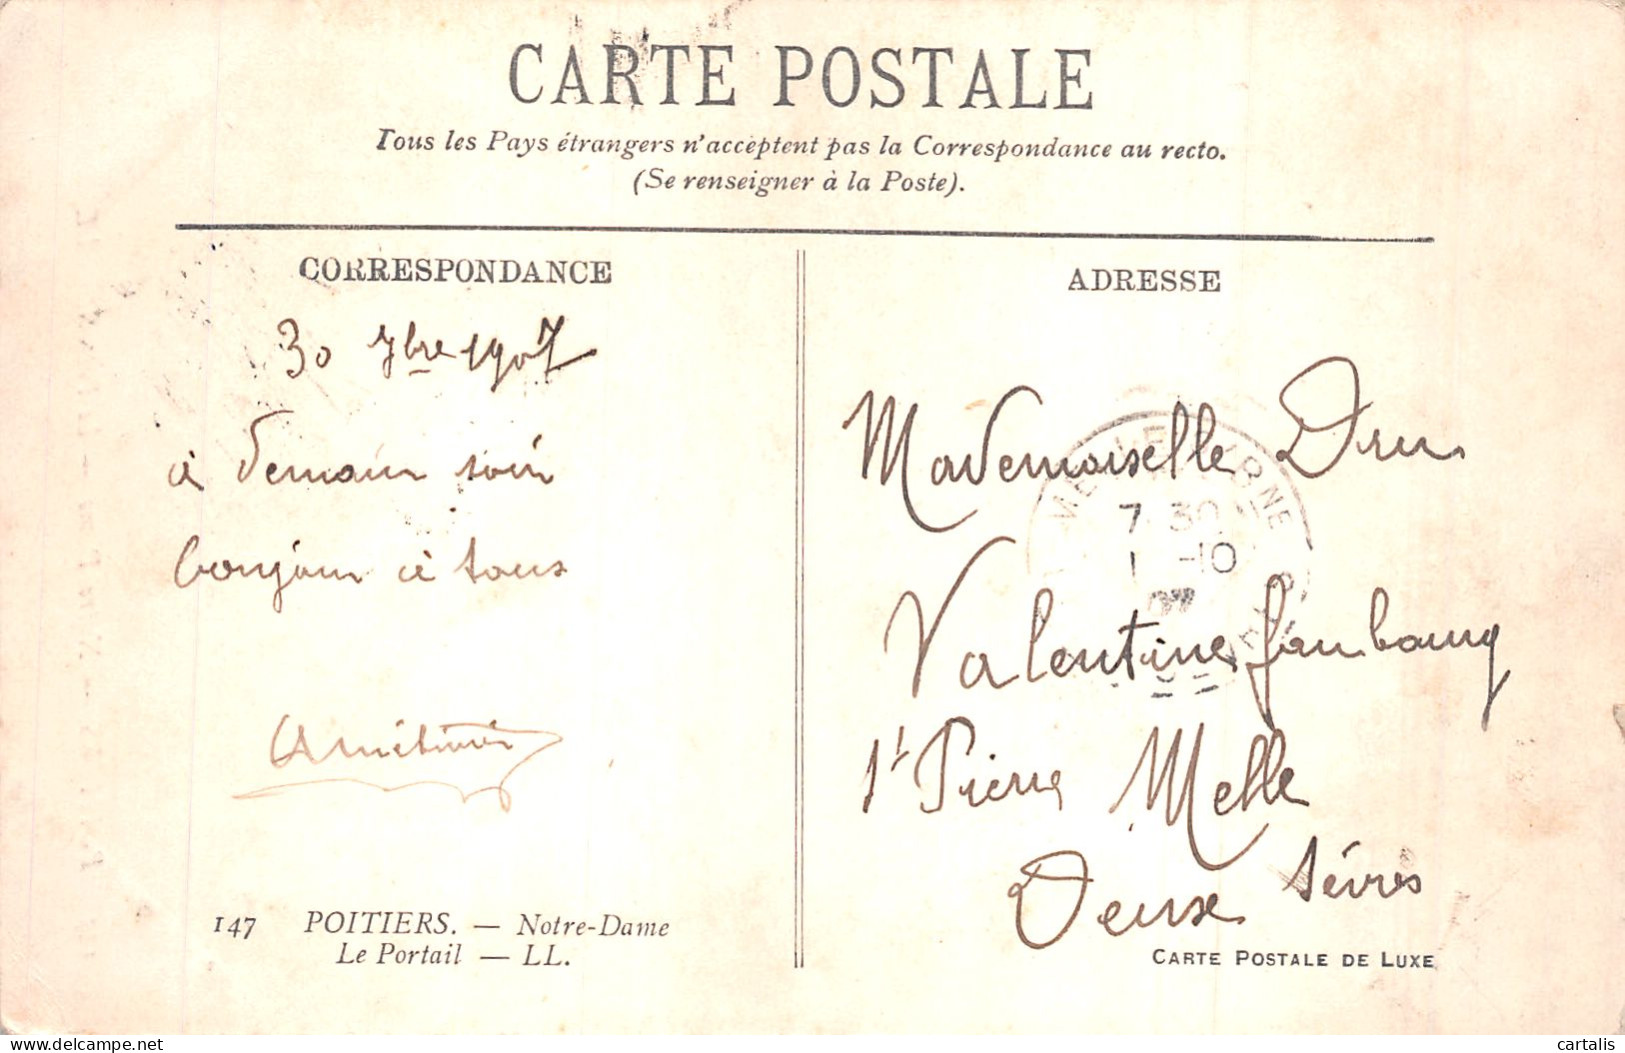 CARTE POSTALE
Tous les Pays étrangers n'acceptent pas la Correspondance au recto.
(Se renseigner à la Poste).
CORRESPONDANCE
30 7bre 1907
à demain soir
bonjour à tous
147 POITIERS. — Notre-Dame
Le Portail — LL.
ADRESSE
Mademoiselle Dru
Valentine faubourg
St Pierre Melle
Deux Sèvres
7 30
1 -10
07
CARTE POSTALE DE LUXE
cartalis